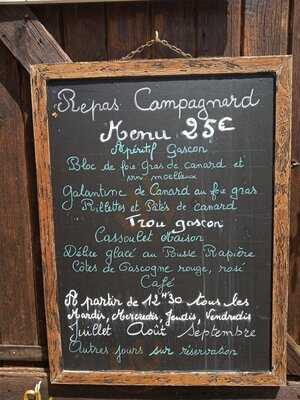 Repas Campagnard
Menu 25€
Apéritif Gascon
Bloc de foie Gras de canard et
vin moelleux
Galantine de Canard au foie gras
Rillettes et Pâtés de canard
Trou gascon
Cassoulet Maison
Délice glacé au Pousse Rapière
Côtes de Gascogne rouge, rosé
Café
A partir de 12H30 tous les
Mardis, Mercredis, Jeudis, Vendredis
Juillet Août Septembre
Autres jours sur réservation